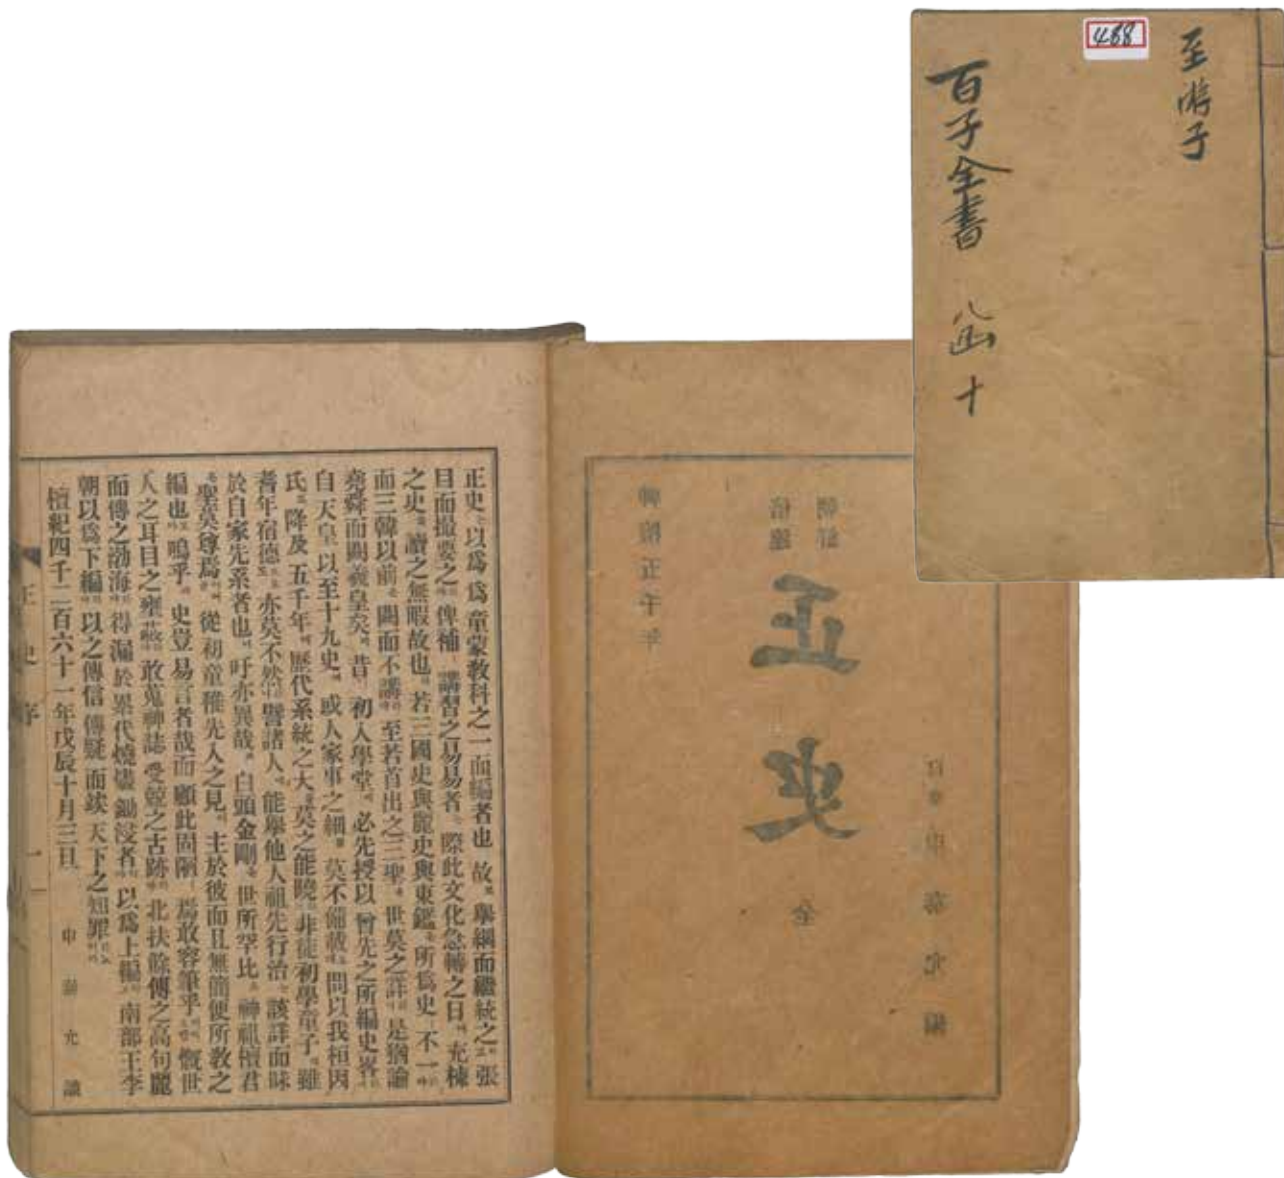 488
至游子
百子全書 八函 十
神檀五千年
倍達
朝鮮
正史 全
申泰允編
正史以爲爲童蒙教科之一面編者也故擧綱而繼統之張
目而撮要之俾補講習之易易者際此文化急轉之日充棟
之史讀之無暇故也若三國史與麗史與東鑑所爲史不一
而三韓以前闕而不講至若首出之三聖世莫之詳是猶論
堯舜而闕羲皇矣昔初入學堂必先授以曾先之所編史畧
自天皇以至十九史或人家事之細莫不備載問以我桓因
氏降及五千年歷代系統之大莫之能曉非徒初學童子雖
耆年宿德亦莫不然譬諸人能擧他人祖先行治該詳而昧
於自家先系者也吁亦異哉白頭金剛世所罕比神祖檀君
聖莫尊焉從初童稚先入之見主於彼而且無簡便所教之
編也嗚乎史豈易言者哉而顧此固陋焉敢容筆乎慨世
人之耳目之壅蔽敢蒐神誌受兢之古跡北扶餘傳之高句麗
而傳之渤海得漏於累代燒燼鋤浸者以爲上編南部王李
朝以爲下編以之傳信傳疑而竢天下之知罪
檀紀四千二百六十一年戊辰十月三日 申泰允識
正史序 一